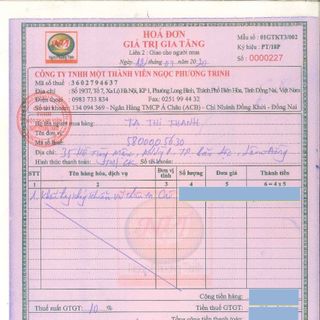 HOÁ ĐƠN
GIÁ TRỊ GIA TĂNG
Liên 2 : Giao cho người mua
Ngày 20
Mẫu số: 01GTKT3/002
Ký hiệu: PT/18P
Số: 0000227
CÔNG TY TNHH MỘT THÀNH VIÊN NGỌC PHƯƠNG TRINH
Mã số thuế : 3602794637
Địa chỉ : Số 129D7, Tổ 7, Xa Lộ Hà Nội, KP 1, Phường Long Bình, Thành Phố Biên Hòa, Tỉnh Đồng Nai, Việt Nam
Điện thoại : 0983 733 834 Fax: 0251 99 44 32
Số tài khoản : 134 094 369 - Ngân Hàng TMCP Á Châu (ACB) - Chi Nhánh Đồng Khởi - Đồng Nai
Họ tên người mua hàng: TẠ THỊ THANH
Tên đơn vị:
Mã số thuế: 5800005630
Địa chỉ: 35 Hồ Tùng Mậu,
Hình thức thanh toán: Số tài khoản:
STT Tên hàng hóa, dịch vụ Đơn vị tính Số lượng Đơn giá Thành tiền
1 2 3 4 5 6 = 4 x 5
1
Cộng tiền hàng:
Thuế suất GTGT: 10 % Tiền thuế GTGT:
Tổng cộng tiền thanh toán: